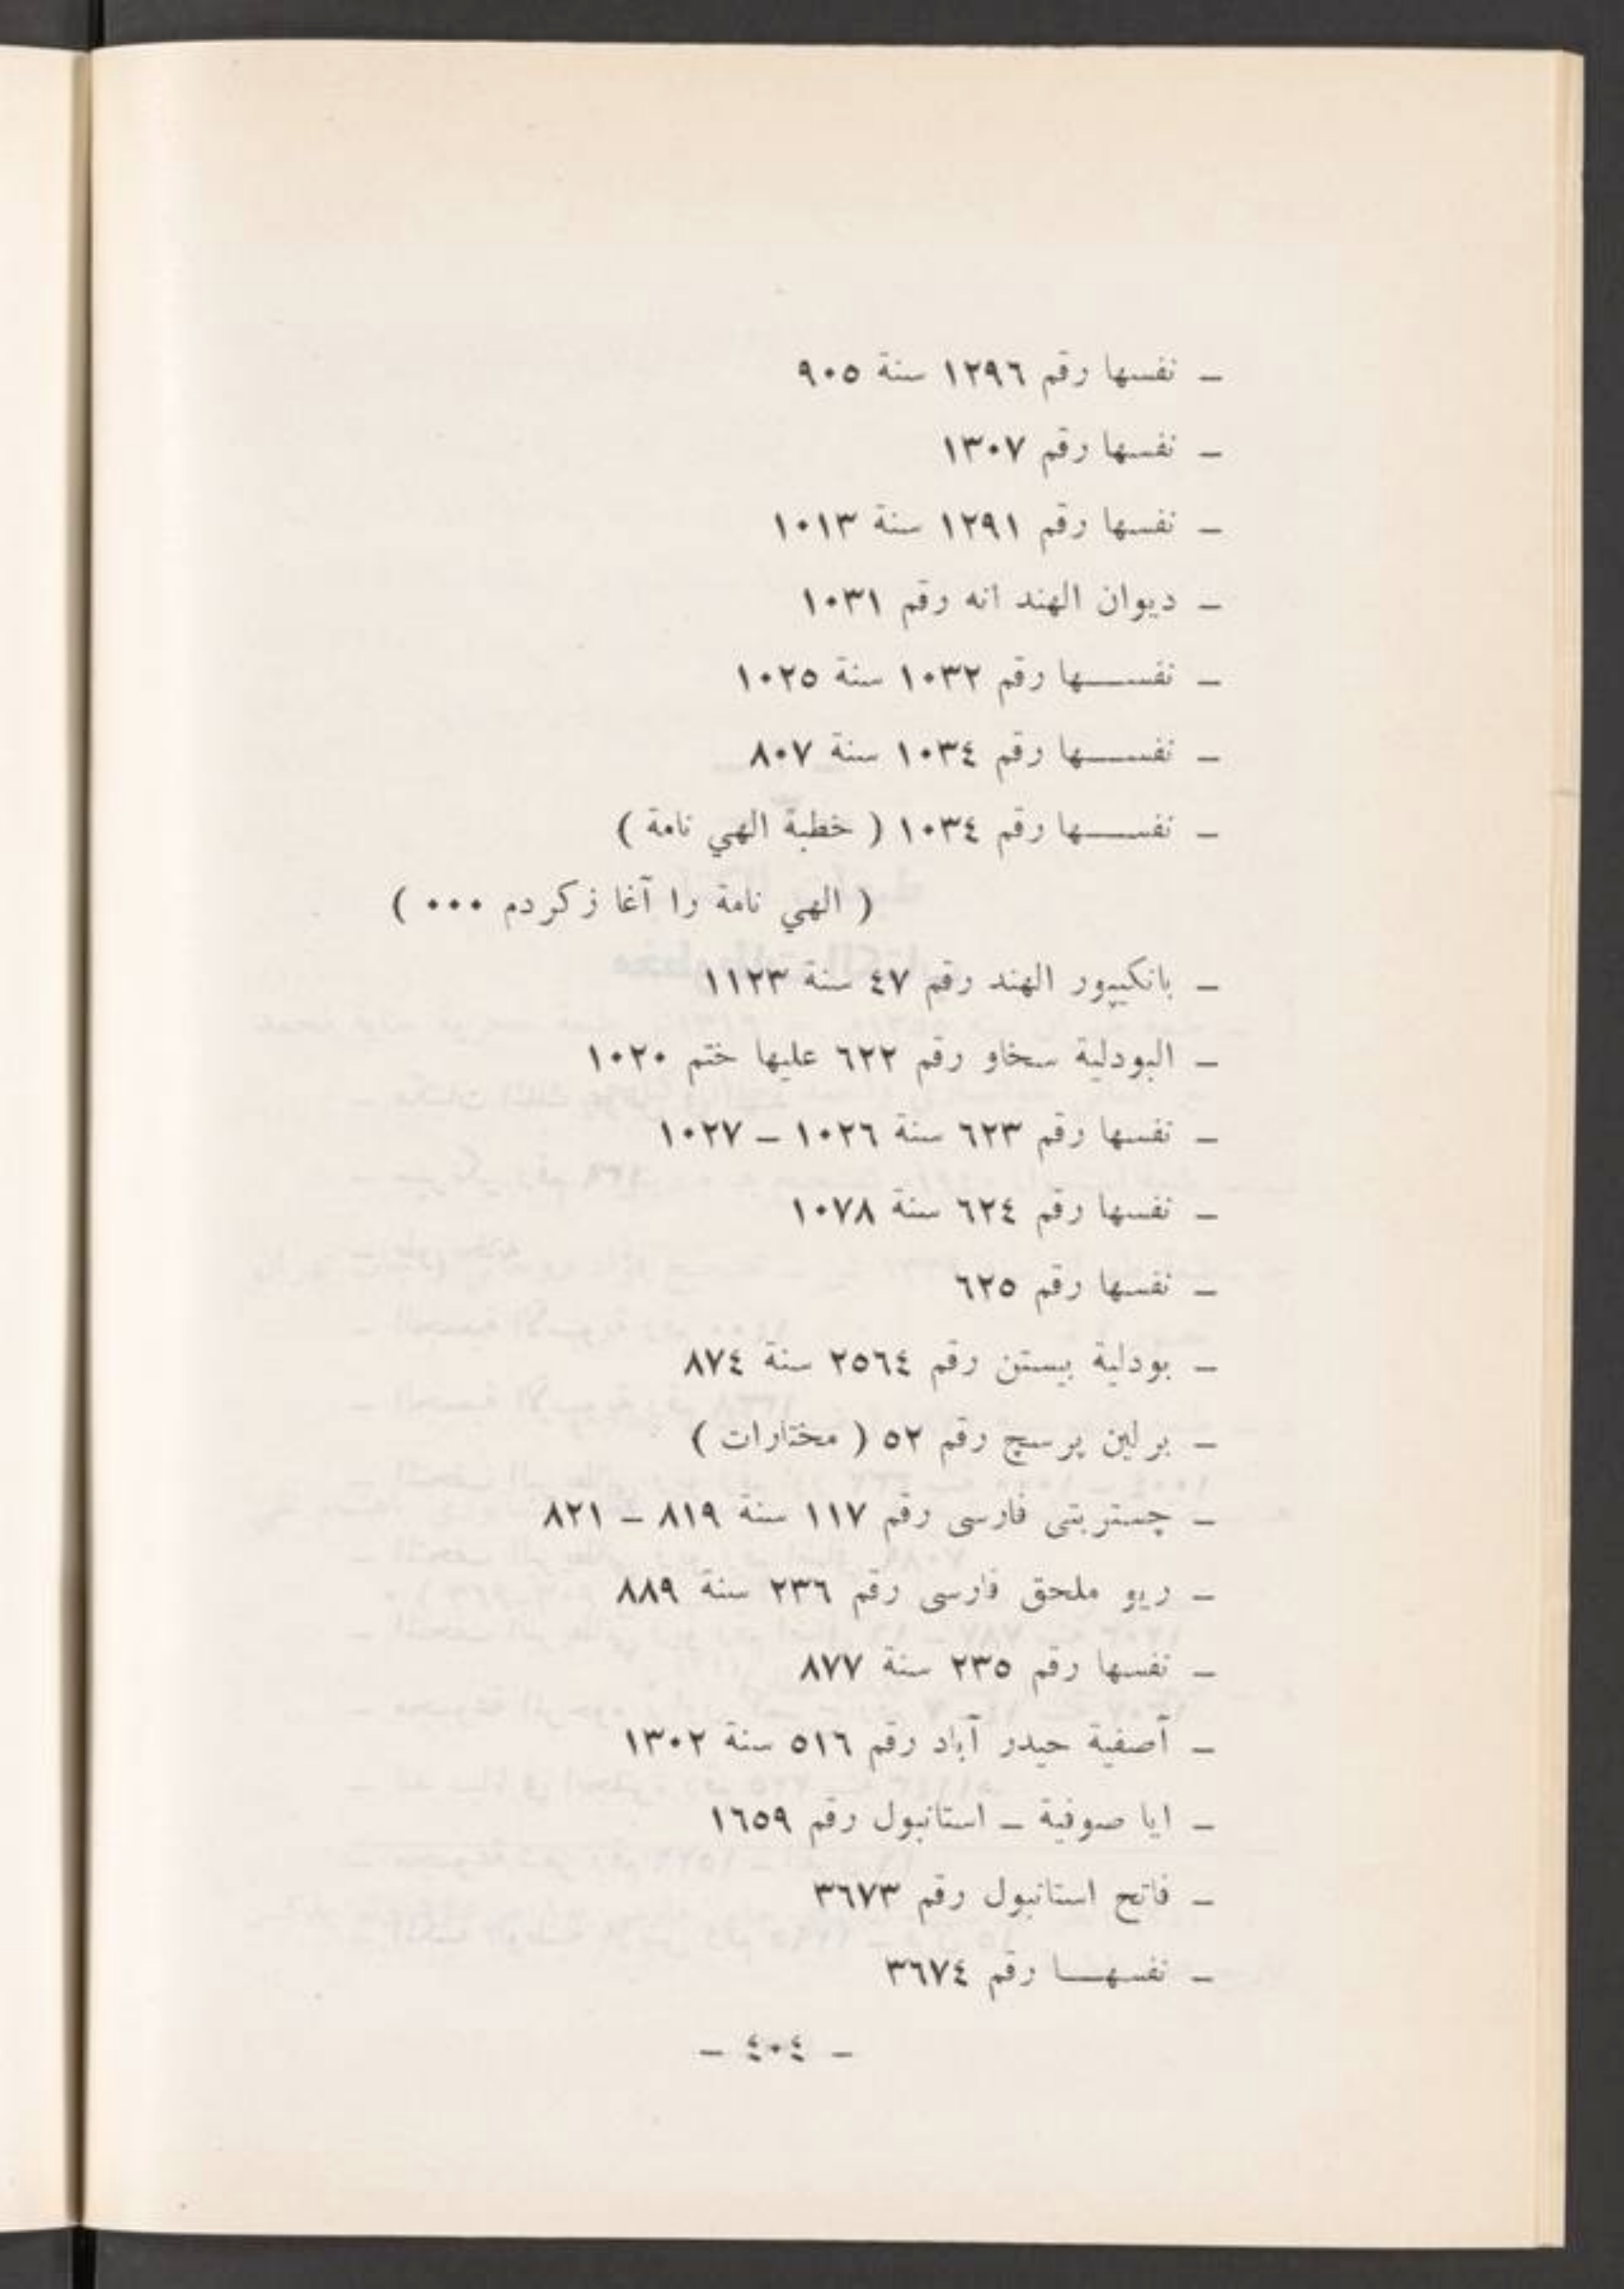 ـ نفسها رقم ١٢٩٦ سنة ٩٠٥
ـ نفسها رقم ١٣٠٧
ـ نفسها رقم ١٢٩١ سنة ١٠١٣
ـ ديوان الهند اته رقم ١٠٣١
ـ نفســـها رقم ١٠٣٢ سنة ١٠٢٥
ـ نفســـها رقم ١٠٣٤ سنة ٨٠٧
ـ نفســـها رقم ١٠٣٤ ( خطبة الهي نامة )
( الهي نامة را آغا زكردم ٠٠٠ )
ـ بانكيپور الهند رقم ٤٧ سنة ١١٢٣
ـ البودلية سخاو رقم ٦٢٢ عليها ختم ١٠٢٠
ـ نفسها رقم ٦٢٣ سنة ١٠٢٦ ـ ١٠٢٧
ـ نفسها رقم ٦٢٤ سنة ١٠٧٨
ـ نفسها رقم ٦٢٥
ـ بودلية بيستن رقم ٢٥٦٤ سنة ٨٧٤
ـ برلين پرسچ رقم ٥٢ ( مختارات )
ـ چستربتى فارسى رقم ١١٧ سنة ٨١٩ ـ ٨٢١
ـ ريو ملحق فارسى رقم ٢٣٦ سنة ٨٨٩
ـ نفسها رقم ٢٣٥ سنة ٨٧٧
ـ آصفية حيدر آباد رقم ٥١٦ سنة ١٣٠٢
ـ ايا صوفية ـ استانبول رقم ١٦٥٩
ـ فاتح استانبول رقم ٣٦٧٣
ـ نفسهــا رقم ٣٦٧٤
ـ ٤٠٤ ـ